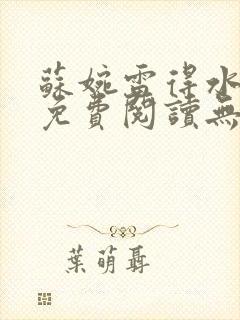 蘇婉雷得水
免費閱讀無
葉萌聶